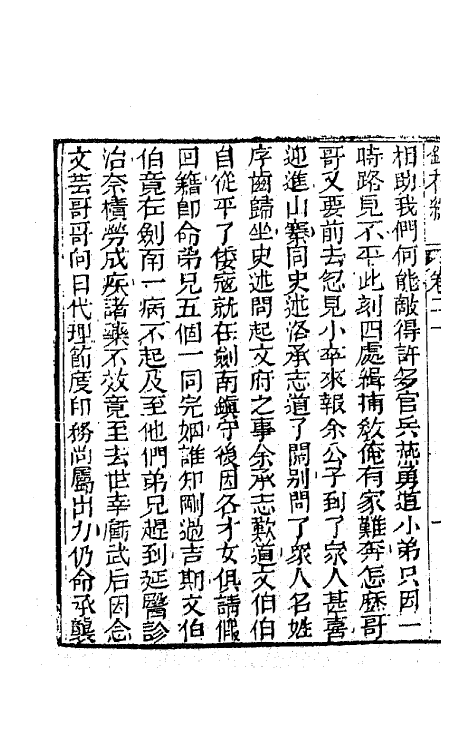 卷二十
相助我們何能敵得許多官兵燕勇道小弟只因一
時路見不平此刻四處緝捕教俺有家難奔怎麽哥
哥又要前去忽見小卒來報余公子到了眾人甚喜
迎進山寨同史述洛承志道了闊别問了眾人名姓
序齒歸坐史述問起文府之事余承志歎道文伯伯
自從平了倭寇就在劍南鎮守後因各才女俱請假
回籍即命弟兄五個一同完姻誰知剛過吉期文伯
伯竟在劍南一病不起及至他們弟兄趕到延醫診
治奈積勞成疾諸藥不效竟至去世幸虧武后因念
文芸哥哥向日代理節度印務尚屬出力仍命承襲